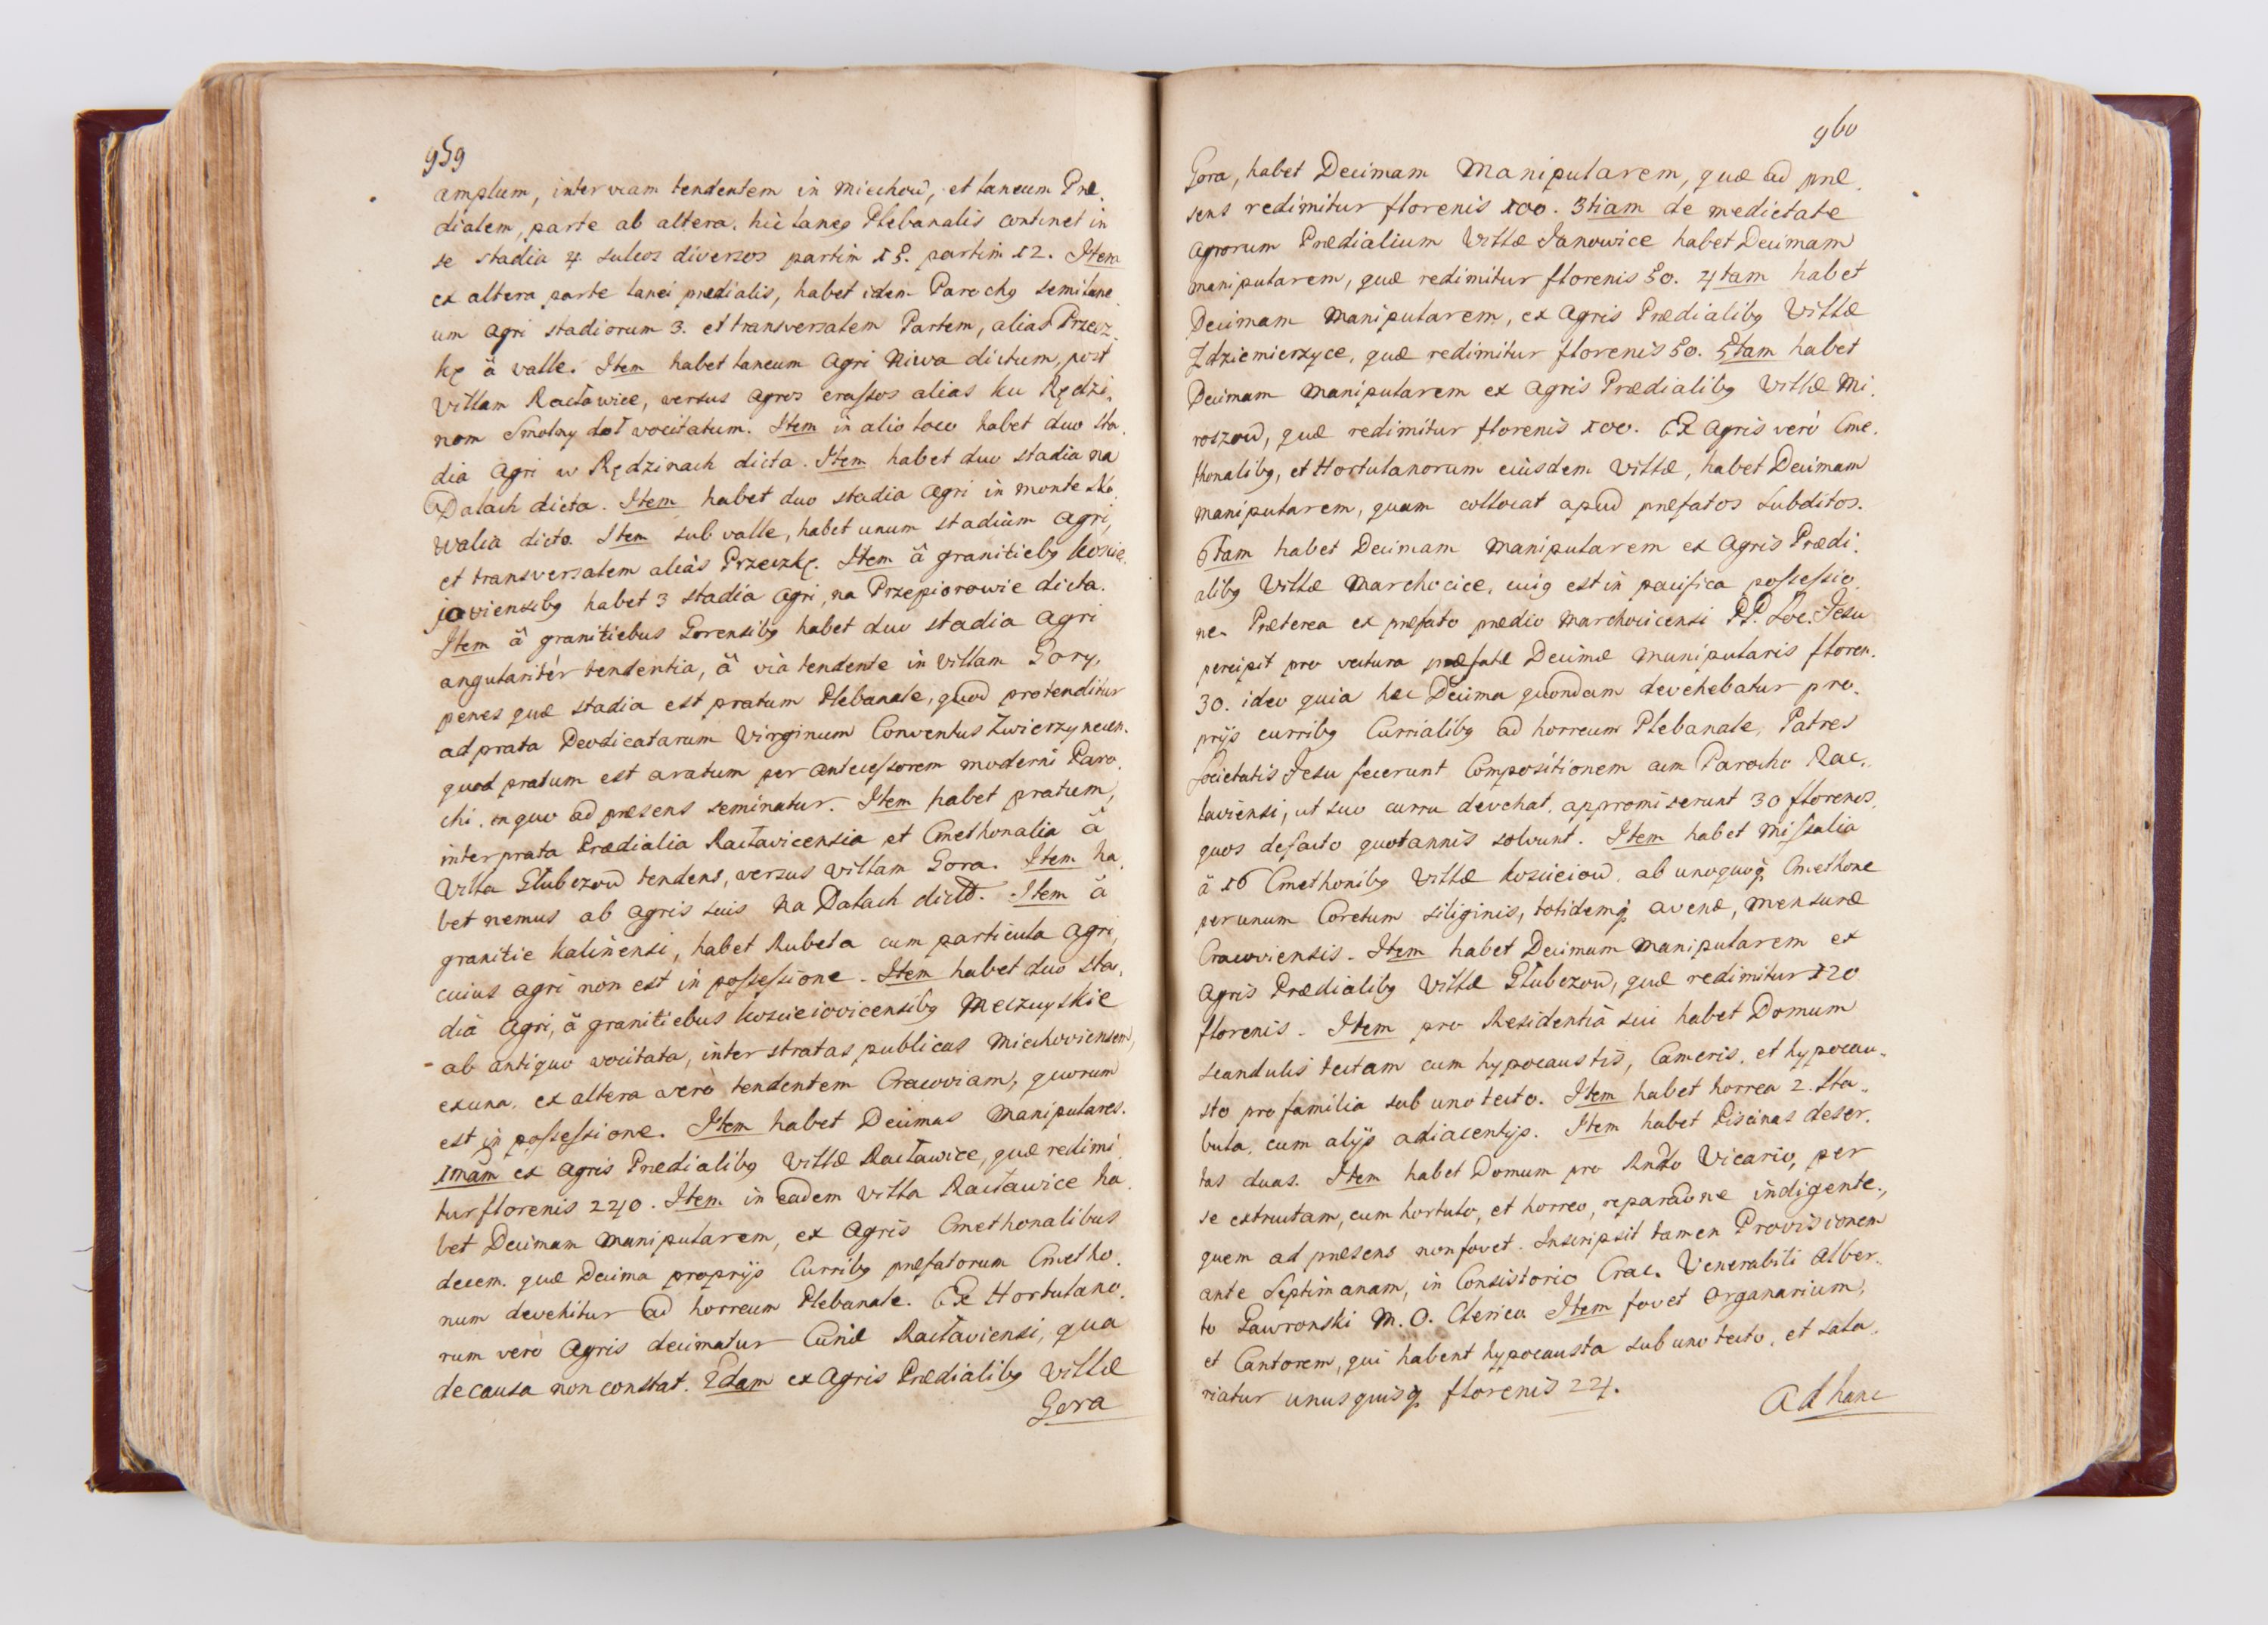 959
amplum, inter viam tendentem in Miechow, et laneum Præ,
dialem, parte ab altera. hic laneg Plebanalis continet in
se stadia 4. sulcos diversos partim 15. partim 12. Item
ex altera parte lanei prædialis, habet idem Parochg semilane,
um agri stadiorum 3. et transversalem Partem, alias Przecz,
kę â valle. Item habet laneum agri Niwa dictum, post
Villam Racławice, versus agros crassos alias ku Rędzi,
nom Smolny doł vocitatum. Item in alio loco habet duo sta,
dia agri w Rędzinach dicta. Item habet duo stadia na
Dałach dicta. Item habet duo stadia agri in monte Sko,
walia dicto. Item sub valle, habet unum stadium agri,
et transversalem aliàs Przeczkę. Item â granitiebg Koscie,
joviensibg habet 3 stadia agri, na Przepiorowie dicta.
Item â granitiebus Gorensibg habet duo stadia agri
angularitér tendentia, â via tendente in Villam Gory,
penes quæ stadia est pratum Plebanale, quod protenditur
ad prata Deodicatarum Virginum Conventus Zwierzynecen.
quod pratum est aratum per antecessorem moderni Paro,
chi. in quo ad præsens seminatur. Item habet pratum,
inter prata Prædialia Racławicensia et Cmethonalia â
Villa Głubczow tendens, versus Villam Gora. Item ha,
bet nemus ab agris suis na Dałach dicto. Item â
granitie Kalinensi, habet Rubeta cum particula agri,
cuius agri non est in possessione. Item habet duo sta,
dia agri, â granitiebus Koscieiovicensibg Meczuyskie
ab antiquo vocitata, inter stratas publicas Miechoviensem,
ex una. ex altera verò tendentem Cracoviam, quorum
est in possessione. Item habet Decimas Manipulares.
1mam ex agris Prædialibg Villæ Racławice, quæ redimi,
tur florenis 240. Item in eadem Villa Racławice ha,
bet Decimam manipularem, ex agris Cmethonalibus
decem. quæ Decima proprijs Curribg præfatorum Cmetho,
num devehitur ad horreum Plebanale. Ex Hortulano,
rum verò agris decimatur Curiæ Racłaviensi, qua
de causa non constat. 2dam ex agris Prædialibg Villæ
Gora
960
Gora, habet Decimam Manipularem, quæ ad præ,
sens redimitur florenis 100. 3tiam de medietate
agrorum Prædialium Villæ Janowice habet Decimam
manipularem, quæ redimitur florenis 50. 4tam habet
Decimam Manipularem, ex agris Prædialibg Villæ
Zdziemierzyce, quæ redimitur florenis 50. 5tam habet
Decimam Manipularem ex agris Prædialibg Villæ Mi,
roszow, quæ redimitur florenis 100. Ex agris verò Cme,
thonalibg, et Hortulanorum eiusdem Villæ, habet Decimam
manipularem, quam collocat apud præfatos Subditos.
6tam habet Decimam manipularem ex agris Prædi,
alibg Villæ Marchocice, cuig est in pacifica possessio,
ne. Præterea ex præfato prædio Marchocicensi PP. Soc. Jesu
percipit pro vectura præfatæ Decimæ manipularis floren.
30. ideo quia hæc Decima quondam devehebatur pro,
prijs curribg Curialibg ad horreum Plebanale, Patres
Societatis Jesu fecerunt Compositionem cum Parocho Rac,
laviensi, ut suo curru devehat. appromiserunt 30 florenos,
quos defacto quotannis solvunt. Item habet Missalia
â 16 Cmethonibg Villæ Koscieiow, ab unoquoq Cmethone
per unum Coretum siliginis, totidemq avenæ, mensuræ
Cracoviensis. Item habet Decimam Manipularem ex
agris Prædialibg Villæ Głubczow, quæ redimitur 120
florenis. Item pro Residentià sui habet Domum
scandulis tectam cum hypocaustis, Cameris, et hypocau,
sto pro familia sub uno tecto. Item habet horrea 2. Sta,
bula, cum alijs adiacentijs. Item habet Piscinas deser,
tas duas. Item habet Domum pro Rndo Vicario, per
se extructam, cum hortulo, et horreo, reparaone indigente,
quem ad præsens non fovet. Inscripsit tamen Provisionem
ante Septimanam, in Consistorio Crac. Venerabili Alber,
to Gawronski M. O. Clerico. Item fovet Organarium,
et Cantorem, qui habent hypocausta sub uno tecto, et sala,
riatur unusquisq florenis 24.
Ad hanc